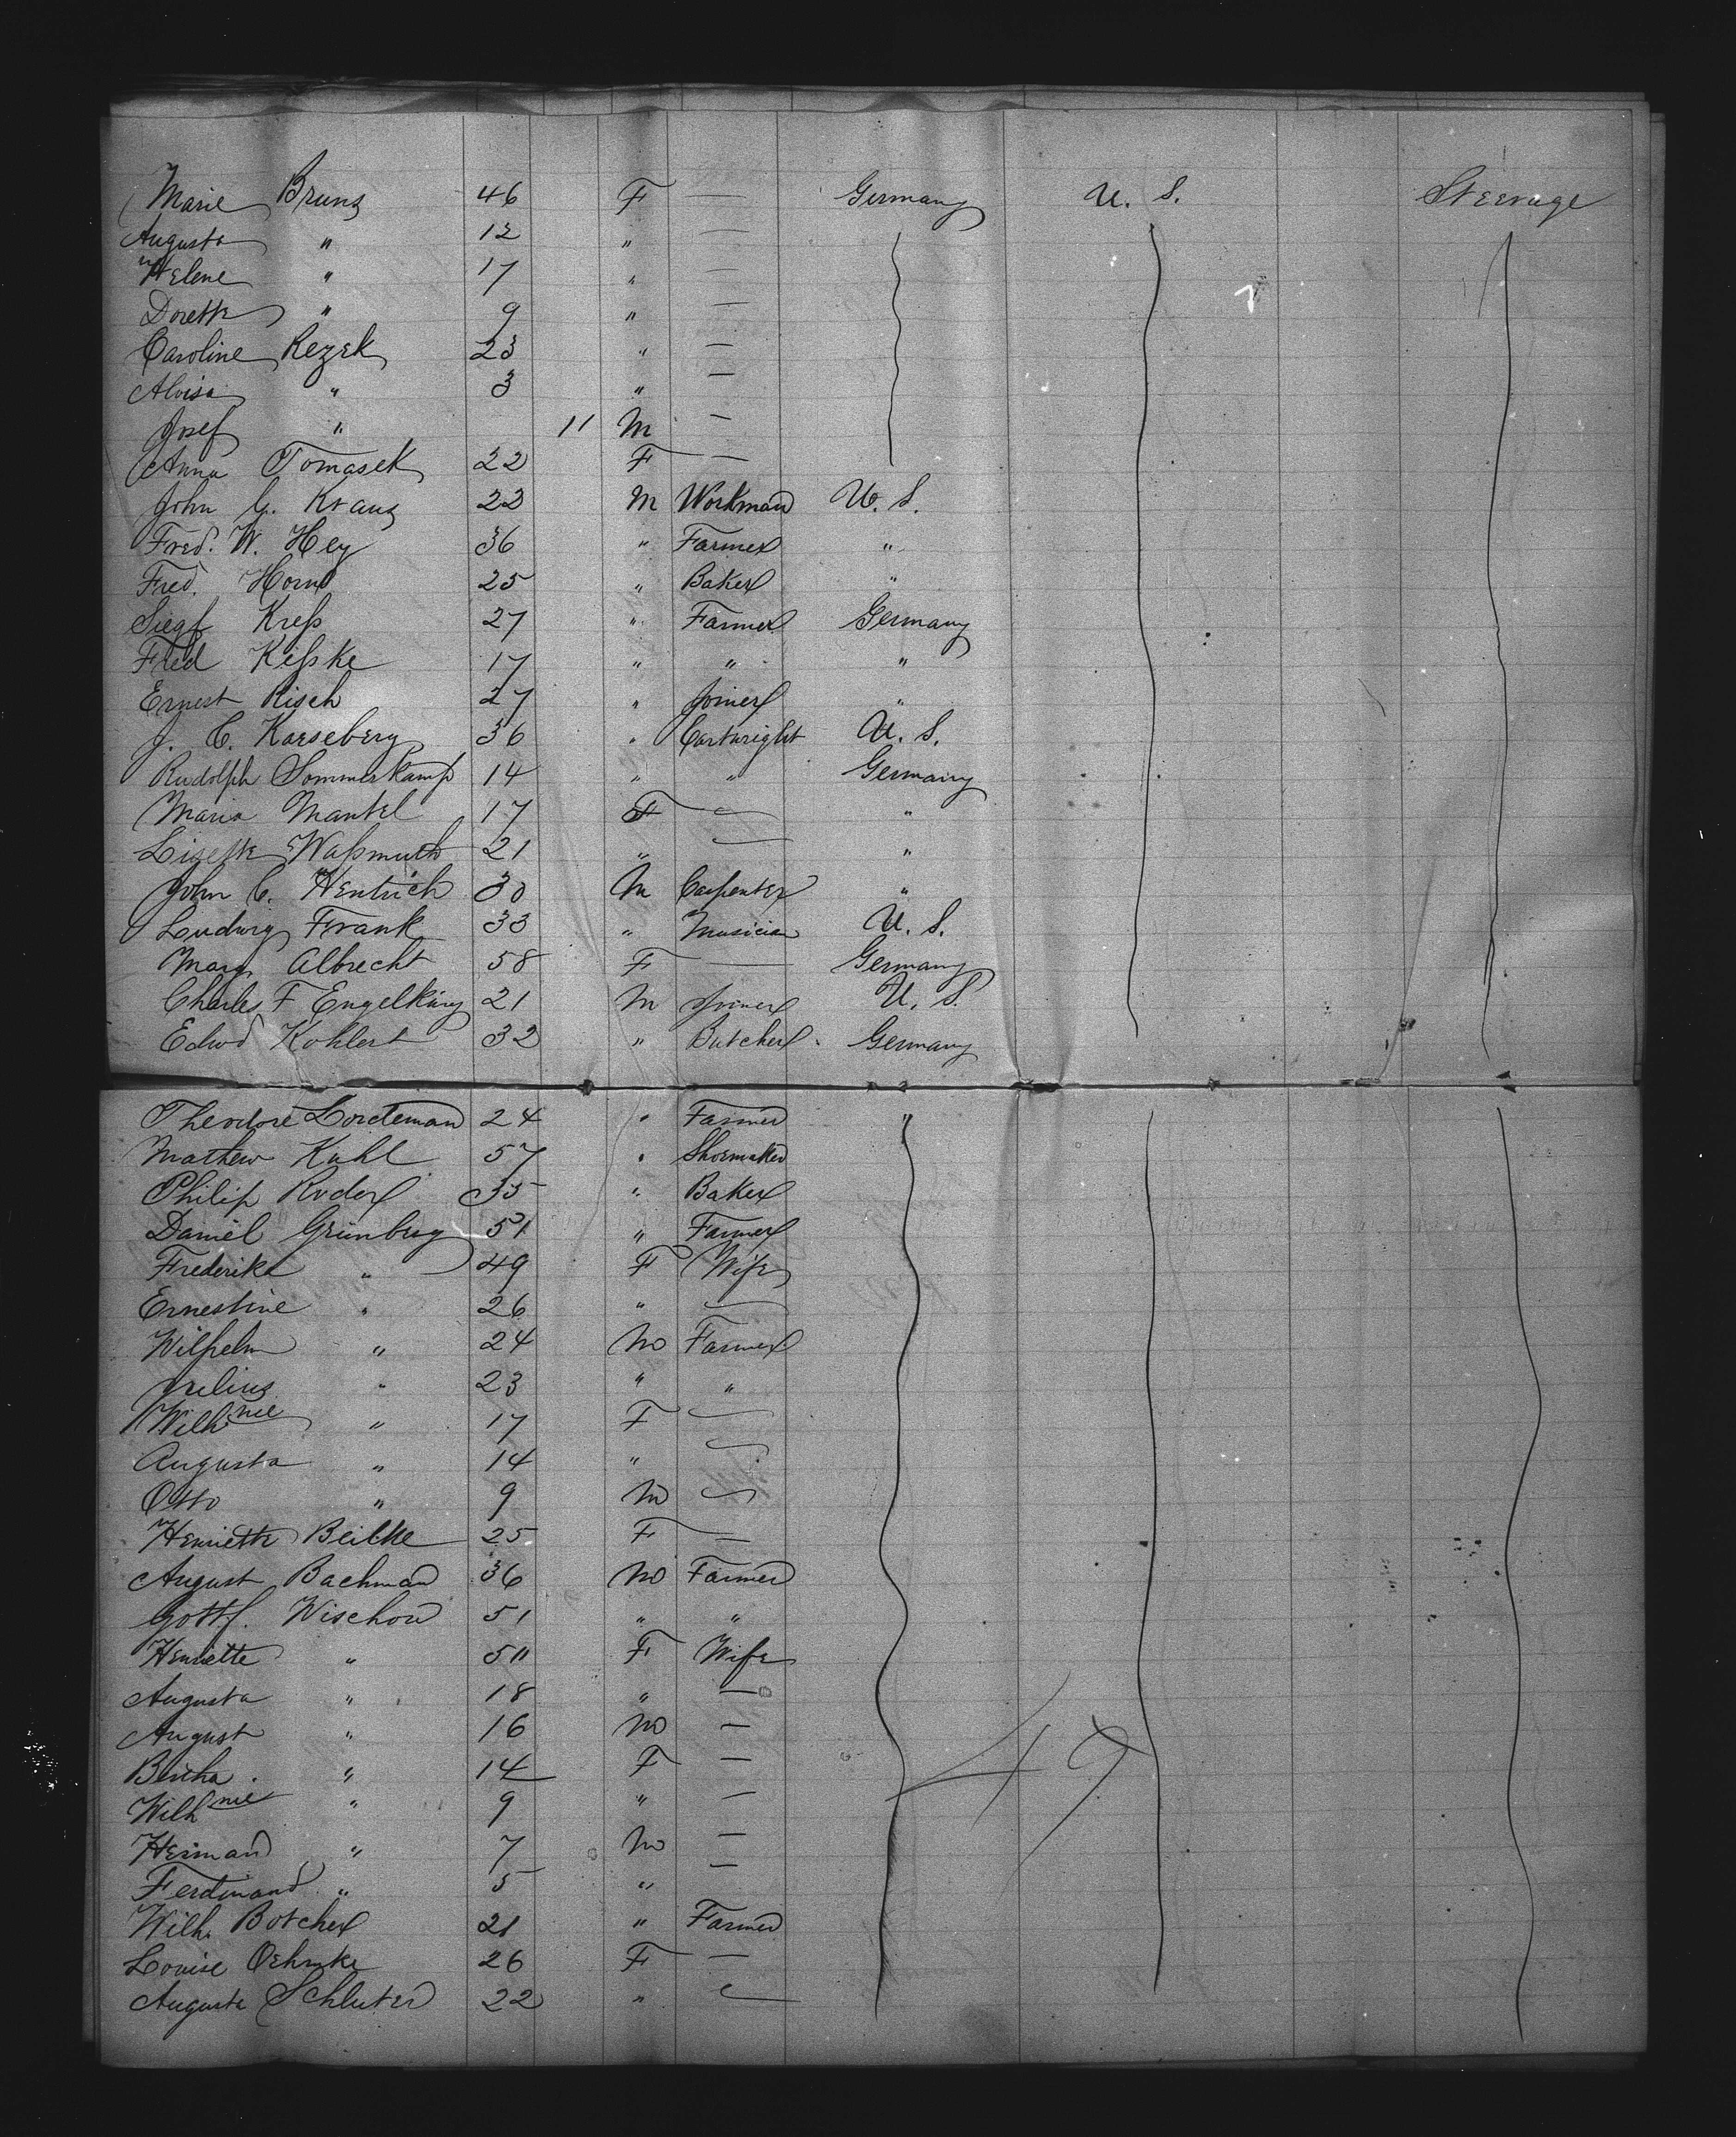 Marie Bruns 46 F — Germany U. S. Steerage
Augusta " 12 " —
Helene " 17 " —
Dorette " 9 " —
Caroline Rezek 23 " —
Aloisa " 3 " —
Josef " 11 M —
Anna Tomasek 22 F —
John G. Kraus 22 M Workman U. S.
Fred. W. Hey 36 " Farmer "
Fred. Horn 25 " Baker "
Siegf Kreſs 27 " Farmer Germany
Fred Keſske 17 " " "
Ernest Risch 27 " Joiner "
J. C. Kaeseberg 36 " Cartwright U. S.
Rudolph Sommerkamp 14 " " Germany
Maria Mantel 17 F — "
Lizette Waſsmuth 21 " — "
John C. Hentrich 30 M Carpenter "
Ludwig Frank 33 " Musician U. S.
Marg Albrecht 58 F — Germany
Charles F Engelking 21 M Joiner U. S.
Edwd Kohlert 32 " Butcher Germany
Theodore 24 " Farmer "
Mathew Kuhl 57 " Shoemaker
Philip Roder 35 " Baker
Daniel Grünberg 51 " Farmer
Frederika " 49 F Wife
Ernestine " 26 " —
Wilhelm " 24 M Farmer
Julius " 23 " "
Wilhnie " 17 F —
Augusta " 14 " —
Otto " 9 M —
Henriette Beilke 25 F —
August Bachman 36 M Farmer
Gottf. Wischow 51 " "
Henriette " 50 F Wife
Augusta " 18 " —
August " 16 M —
Bertha " 14 F —
Wilhnie " 9 " —
Herman " 7 M —
Ferdinand " 5 " —
Wilh. Botcher 21 " Farmer
Louise Oehmke 26 F —
Auguste Schluter 22 " —
49